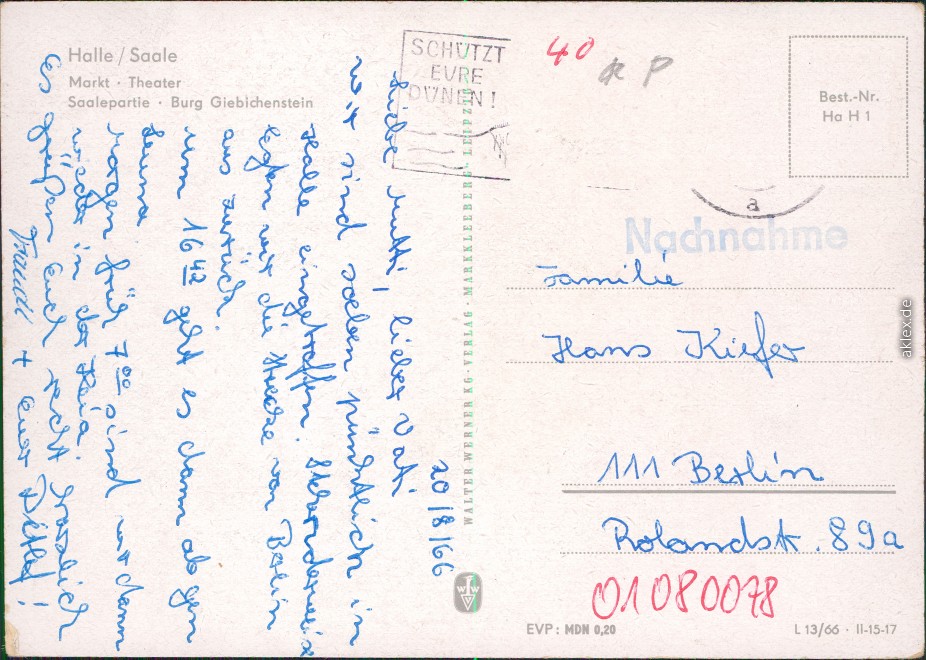 Halle / Saale
Markt · Theater
Saalepartie · Burg Giebichenstein
20/8/66
Liebe Mutti, lieber Vati
wir sind soeben pünktlich in
Halle eingetroffen.
legen wir die Strecke von Berlin
aus zurück.
Um 16 42 geht es dann ab gen
Leuna
Morgen früh 7 00 sind wir dann
wieder in der Heia.
Es grüßen Euch recht herzlich
Traudl + Euer Detlef!
SCHÜTZT
EURE
DÜNEN!
WALTER WERNER KG · VERLAG · MARKKLEEBERG-LEIPZIG
40
R P
Best.-Nr.
Ha H 1
a
Nachnahme
Familie
Hans Kiefer
111 Berlin
Rolandstr. 89a
01080078
WWV
EVP: MDN 0,20
L 13/66 · II-15-17
aklex.de